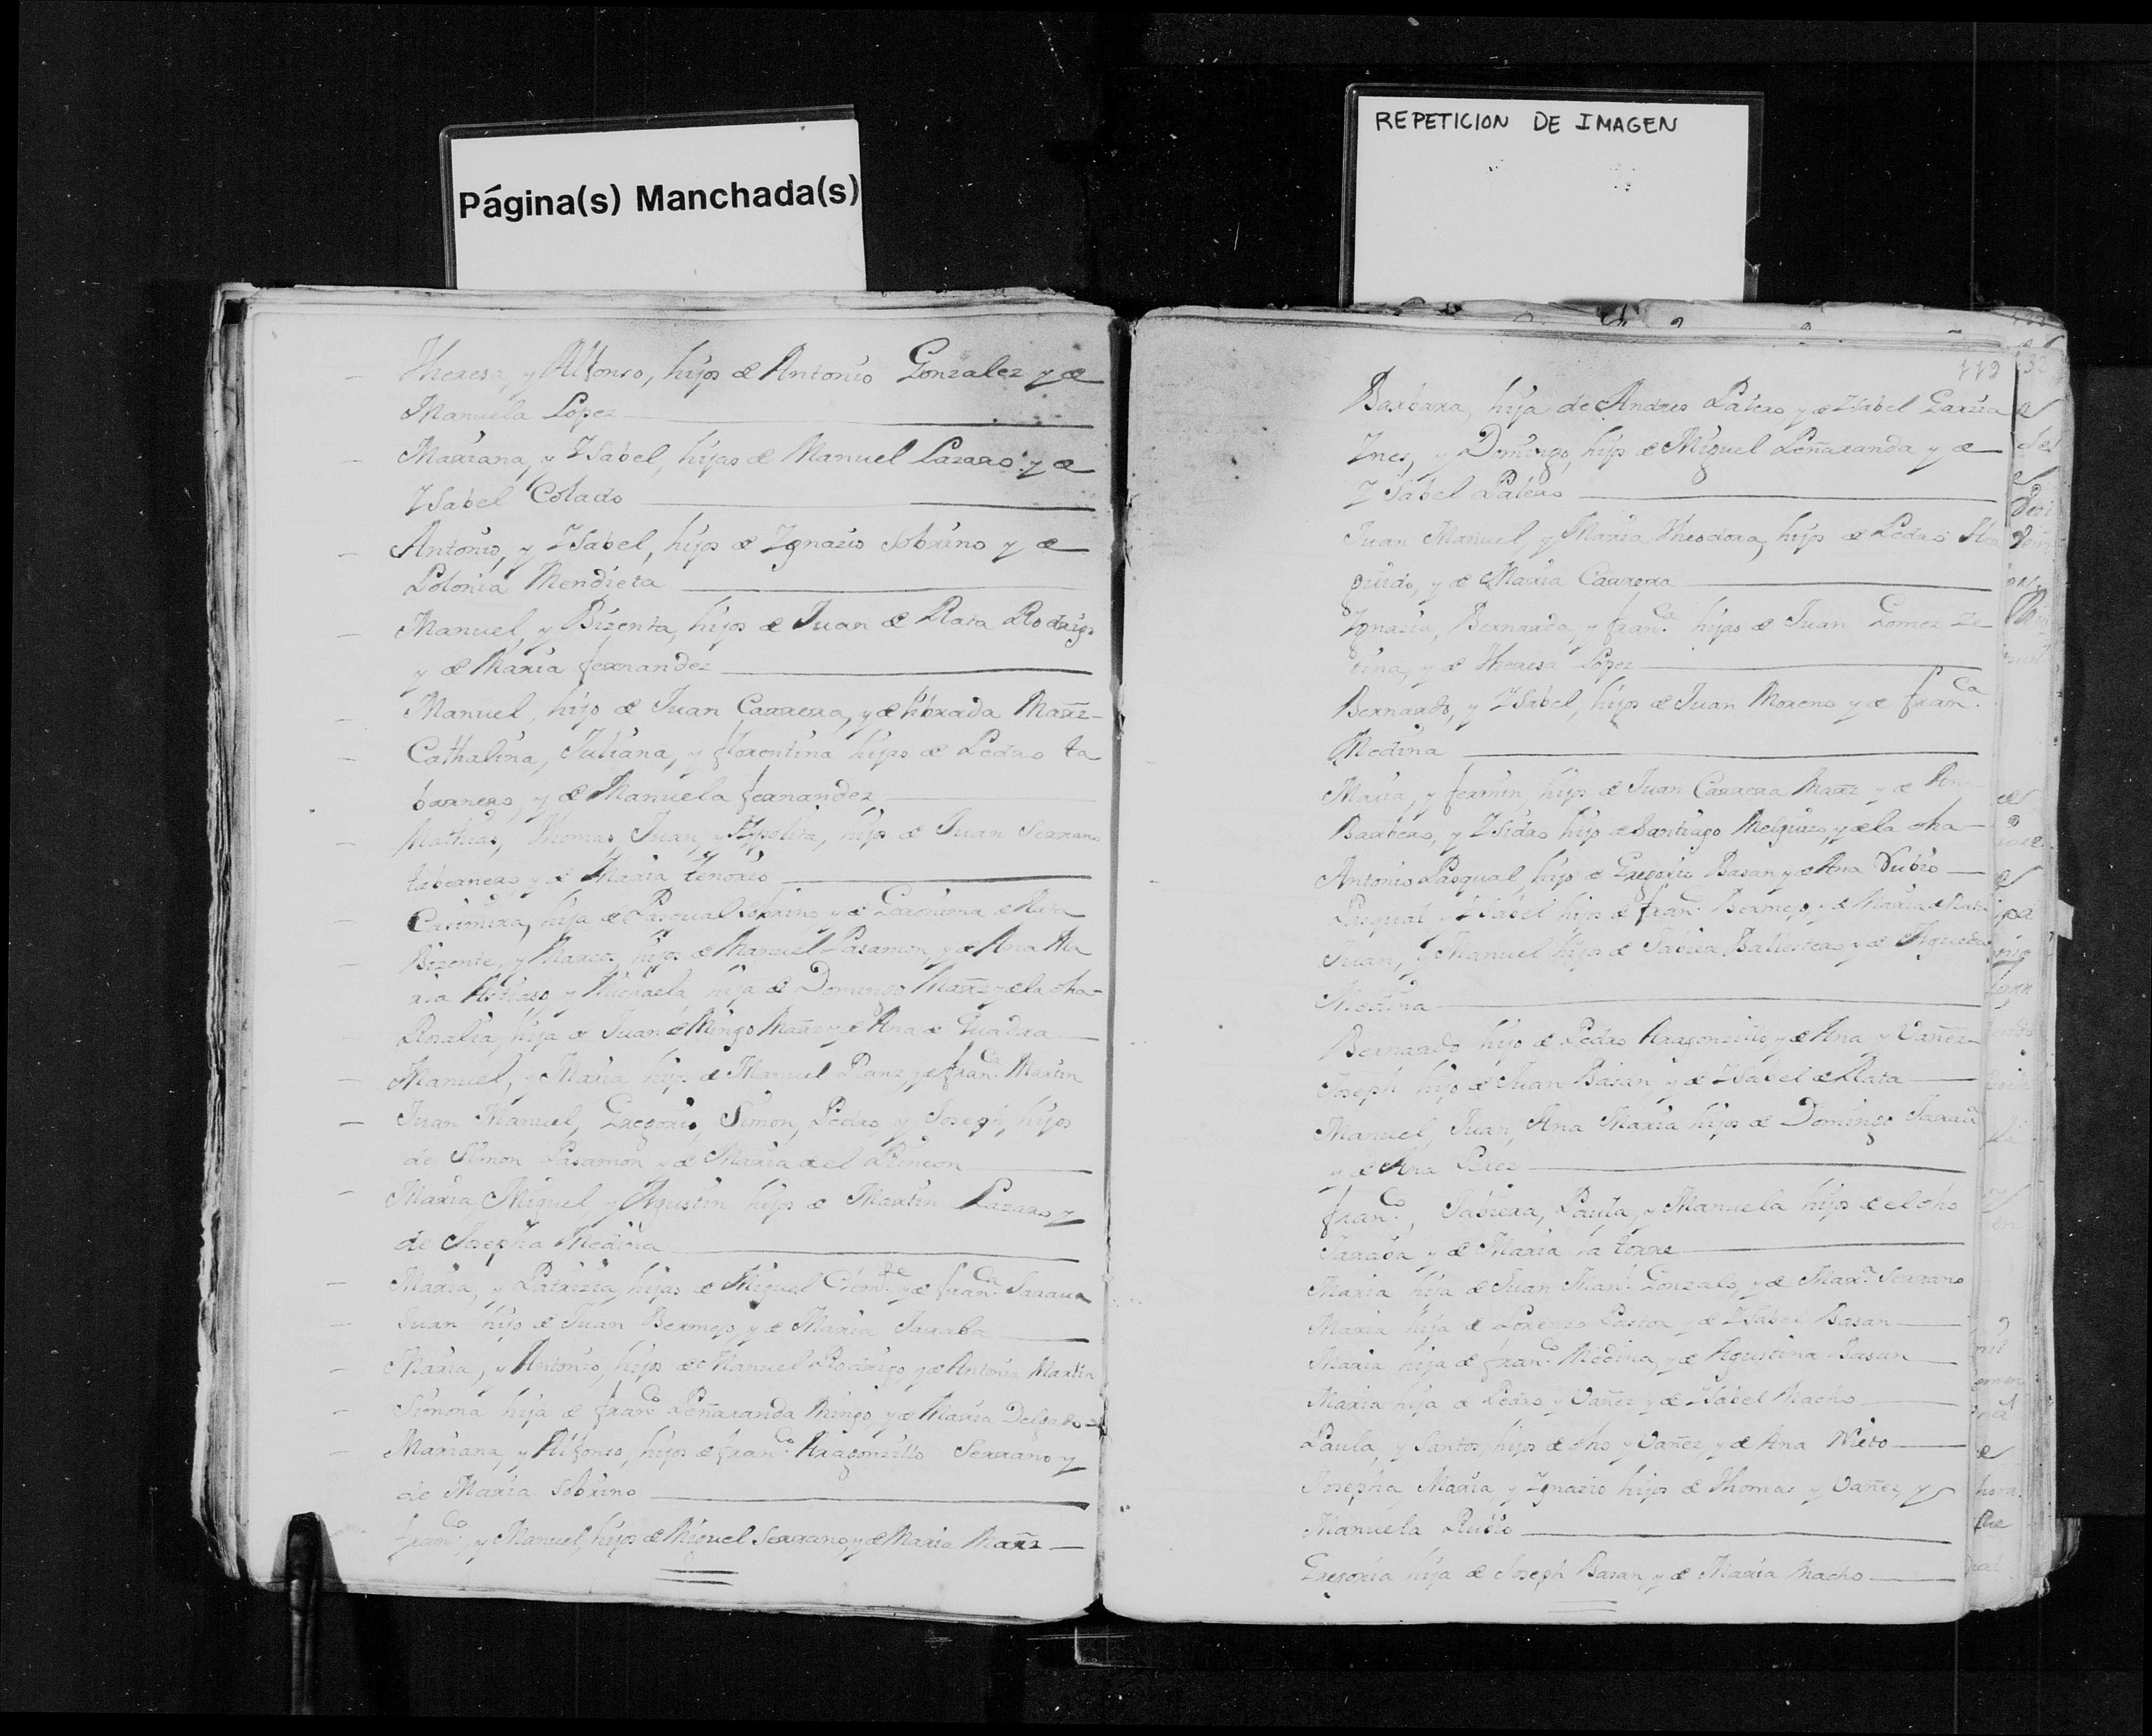 Página(s) Manchada(s)
REPETICION DE IMAGEN
Theresa, y Alfonso, hijos de Antonio Gonzalez y de
Manuela Lopez
Mariana, y Ysabel, hijas de Manuel Lazaro y de
Ysabel Colado
Antonio, y Ysabel, hijos de Ygnazio Sobrino y de
Polonia Mendieta
Manuel, y Bizenta, hijos de Juan de Plata Rodrigo
y de Maria fernandez
Manuel, hijo de Juan Carrera, y de librada Marz
Cathalina, Juliana, y florentina hijas de Pedro ta
barnero, y de Manuela fernandez
Mathias, Thomas, Juan, y Ypolita, hijos de Juan Serrano
tabernero y de Maria tenorio
Casimira, hija de Pasqual Sobrino, y de Geronima de Plata
Bizente, y Marcos, hijos de Manuel Pasamon, y de Ana Ma
ria y Michaela hija de Domingo Marz y de la dha
Rosalia, hija de Juan de Mingo Marz y de Ana de Quadra
Manuel, y Maria hijos de Manuel Planz y de franca Martin
Juan Manuel, Gregorio, Simon, Pedro, y Joseph, hijos
de Simon Pasamon y de Maria del Rincon
Maria, Miguel, y Agustin hijos de Martin Lazaro y
de Josepha Medina
Maria, y Patrizia, hijas de Miguel y de franca Jarava
Juan hijo de Juan Bermejo, y de Maria Jaraba
Maria, y Antonio, hijos de Manuel Rodrigo y de Antonia Martin
Simona hija de franco Peñaranda Mingo, y de Maria Delgado
Mariana, y Alfonso, hijos de franco Aragonzillo Serrano y
de Maria Sobrino
franco, y Manuel, hijos de Miguel Serrano, y de Maria Marz
112
Barbara, hija de Andres Palero y de Ysabel Garzia
Ynes, y Domingo, hijos de Miguel Peñaranda y de
Ysabel Palero
Juan Manuel, y Maria Theodora, hijos de Pedro
guido, y de Maria Carrera
Ygnazia, Bernarda, y franca hijas de Juan Gomez Ze
tina, y de Theresa Lopez
Bernardo, y Ysabel, hijos de Juan Moreno y de franca
Medina
Maria, y fermin, hijos de Juan Carrera Marz y de Ana
Barbero, y Ysidro hijo de Santiago Melguizo, y de la dha
Antonio Pasqual, hijo de Gregorio Basan y de Ana Rubio
Pasqual y Ysabel hijos de franco Bermejo y de Maria de Plata
Juan, y Manuel hijos de Ballestero y de Agueda
Medina
Bernardo hijo de Pedro Aragonzillo y de Ana y Vañez
Joseph hijo de Juan Basan, y de Ysabel de Plata
Manuel, Juan, Ana Maria hijos de Domingo Jaraua
y de Ana Perez
franco, Jabiera, Paula, y Manuela hijos de el dho
Jaraba y de Maria la torre
Maria hija de Juan Manl Gonzalo, y de Mara Serrano
Maria hija de Lorenzo Pastor y de Ysabel Basan
Maria hija de franco Medina, y de Agustina Basan
Maria hija de Pedro y Vañez y de Ysabel Macho
Paula, y Santos, hijos de dho y Vañez, y de Ana Nieto
Josepha, Maria, y Ygnazio hijos de Thomas y Vañez, y
Manuela Rubio
Gregoria hija de Joseph Basan y de Maria Macho